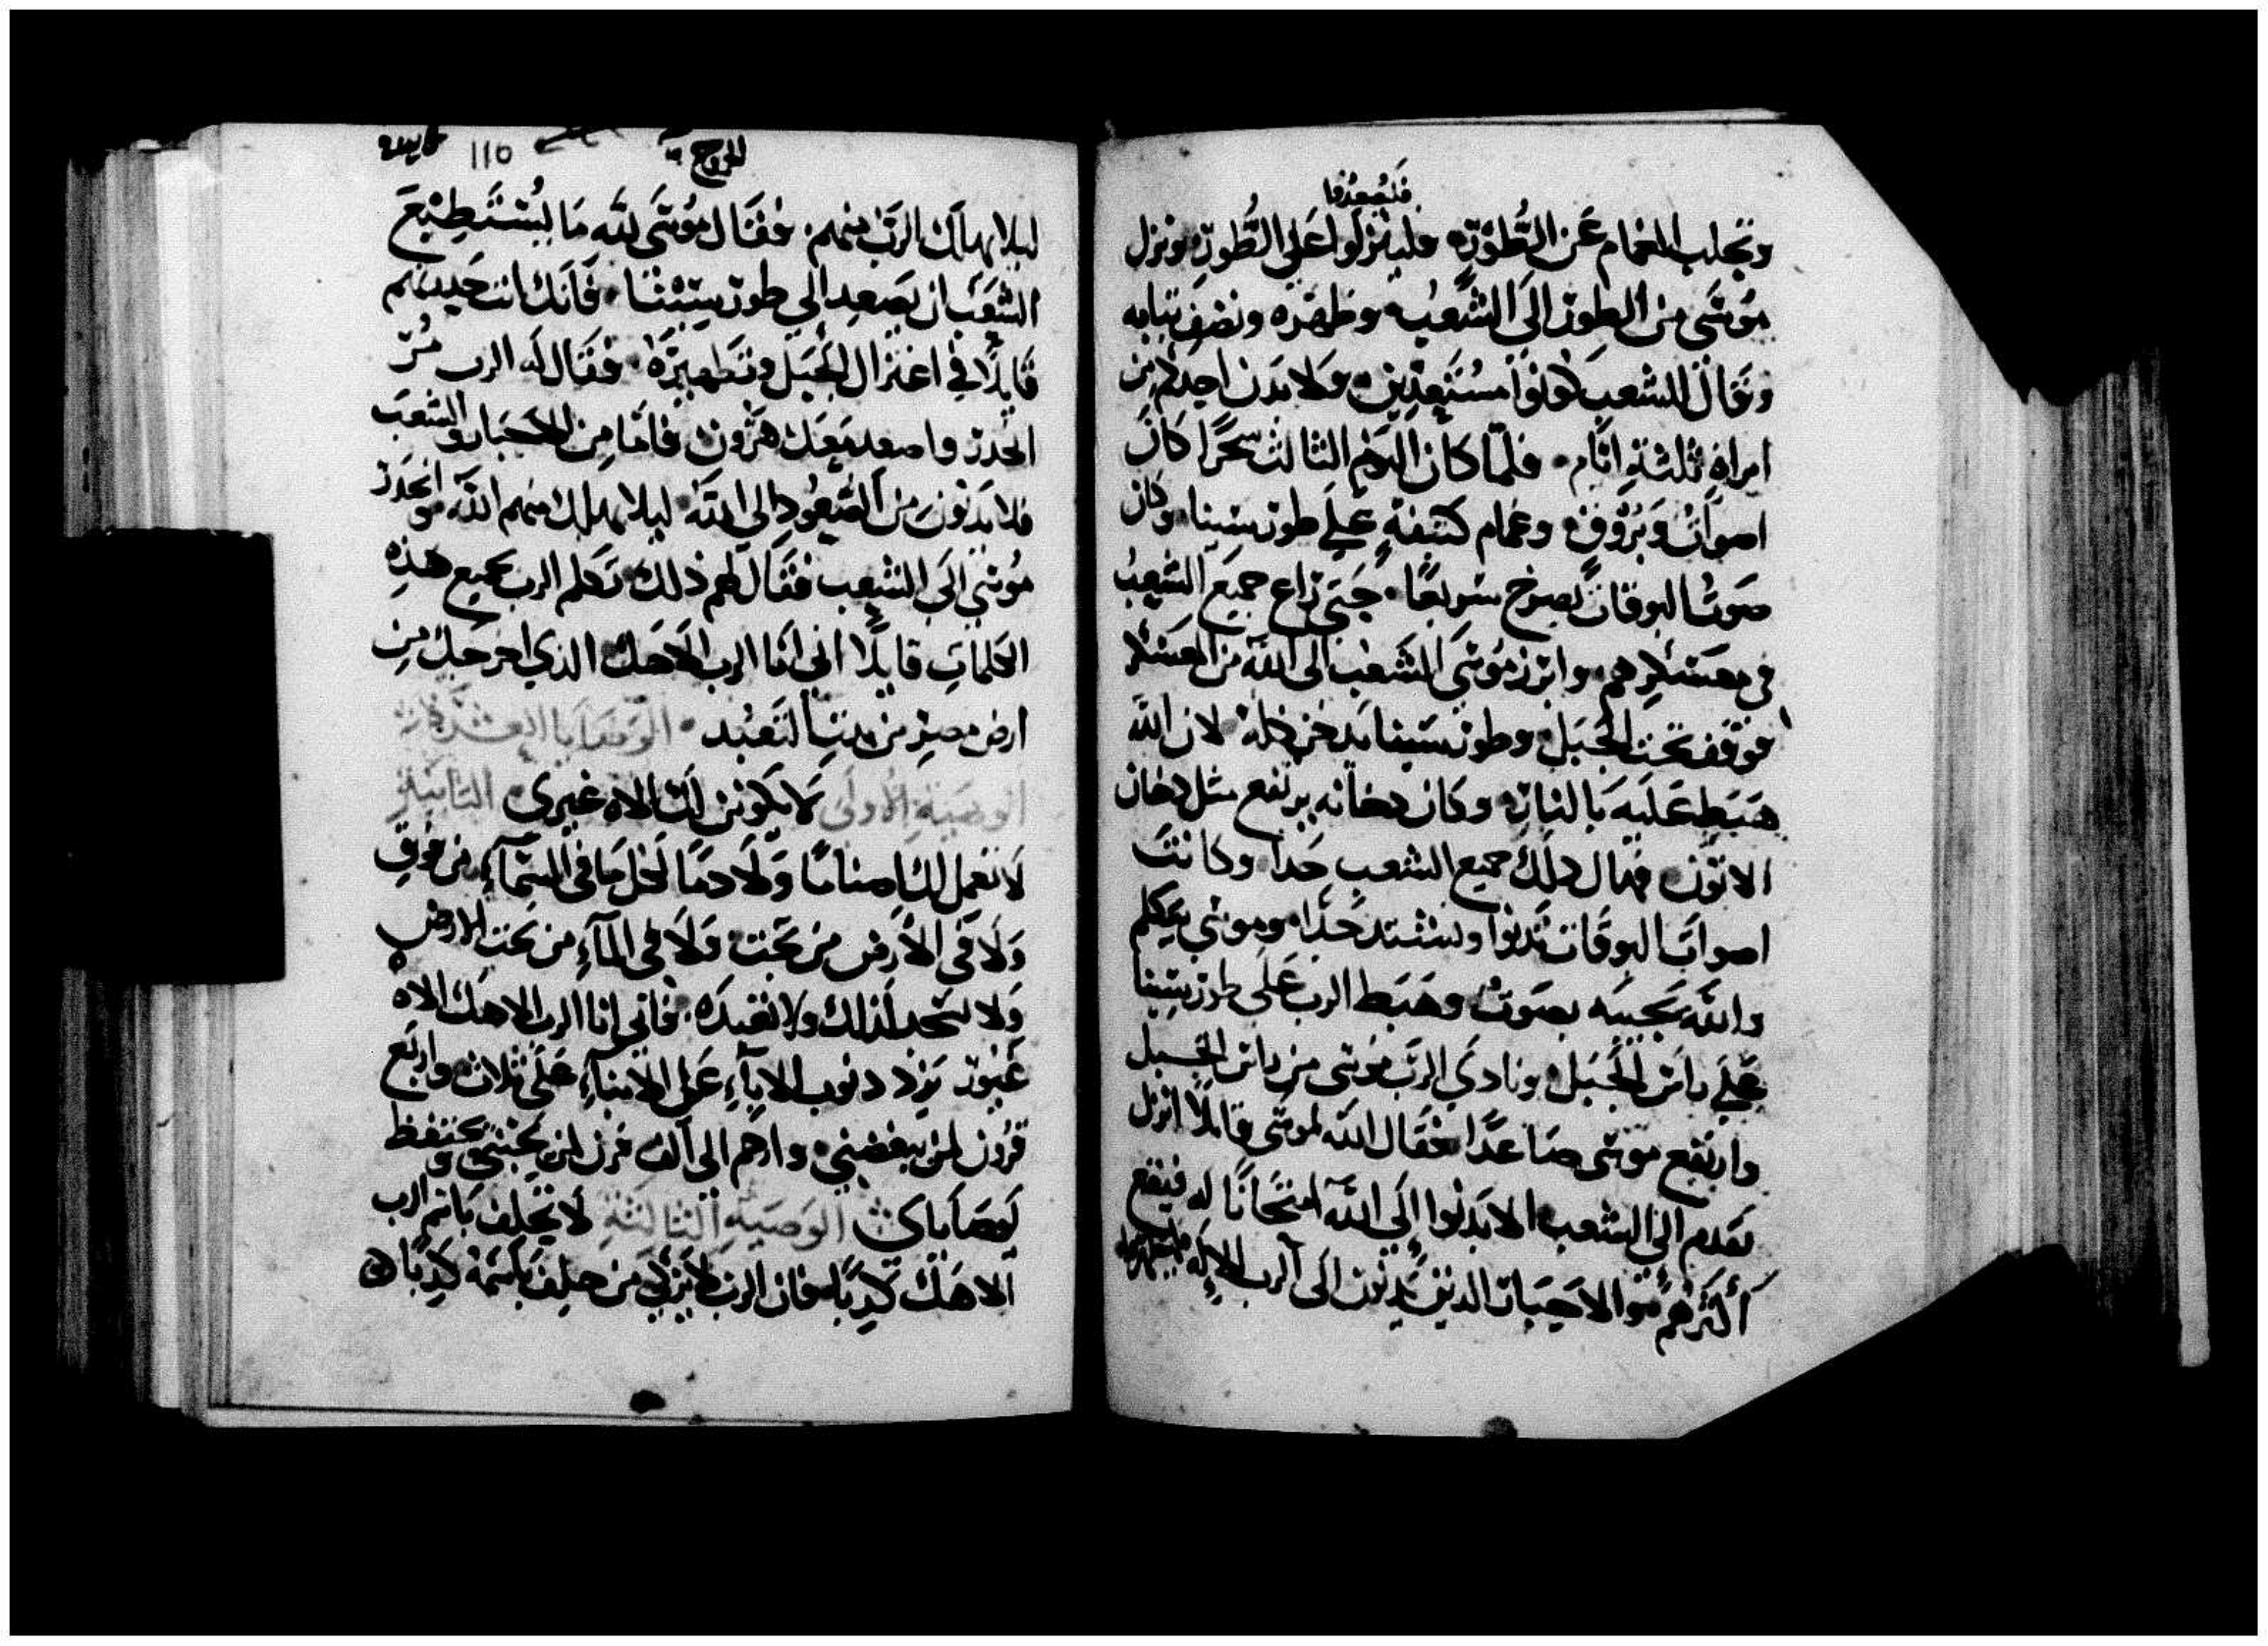 فليصعدوا
وتجلب الغمام عن الطور فلينزلوا على الطور ونزل
موسى من الطور الى الشعب وطهره ونضف ثيابه
وقال للشعب كونوا مستعدين ولا يدن احدكم من
امراة ثلثة ايام فلما كان اليوم الثالث سحرًا كان
اصوات وبروق وغمام كثيفة على طور سينا وكان
صوت البوقات يصرخ سريعًا حتى زاع جميع الشعب
في معسكرهم وابرز موسى الشعب الى الله من العسكر
فوقف تحت الجبل وطور سينا يدخن كله لان الله
هبط عليه بالنار وكان دخانه يرتفع مثل دخان
الاتون فهال ذلك جميع الشعب جدا وكانت
اصوات البوقات تدنوا وتشتد جدا وموسى يتكلم
والله يجيبه بصوت وهبط الرب على طور سينا
على راس الجبل ونادى الرب موسى من راس الجبل
وارتفع موسى صاعدًا فقال الله لموسى قايلا انزل
تقدم الى الشعب الا يدنوا الى الله امتحانًا له فيقع
اكثرهم موا الاحبار الذين يدنون الى الرب الاله
الخروج ١١٥
ليلا يهلك الرب منهم فقال موسى لله ما يستطيع
الشعب ان يصعد الى طور سينا فانك انت
قايلًا في اعتزال الجبل وتطهيره فقال له الرب مُر
انحدر واصعد معك هرون فاما من الاحبار والشعب
فلا يدنون من الصعود الى الله ليلا يهلك منهم الله وانحدر
موسى الى الشعب فقال لهم ذلك تكلم الرب بجميع هذه
الكلمات قايلًا اني انا الرب الاهك الذي اخرجك من
ارض مصر من بيت التعبد الوصايا العشر
الوصية الاولى لا يكونن لك الاه غيرى الثانية
لا تعمل لك اصنامًا ولا دمًا لكل ما في السماء من فوق
ولا في الارض من تحت ولا في الماء من تحت الارض
ولا تسجد لذلك ولا تعبده فاني انا الرب الاهك الاه
غيور يرد دنوب الاباء على الابناء على ثلاث واربع
قرون لمن يبغضني وارحم الى الف قرن لمن يحبني ويحتفظ
لوصاياى الوصية الثالثة لا تحلف باسم الرب
الاهك كذبًا فان الرب لا يزكي من حلف باسمه كذبًا